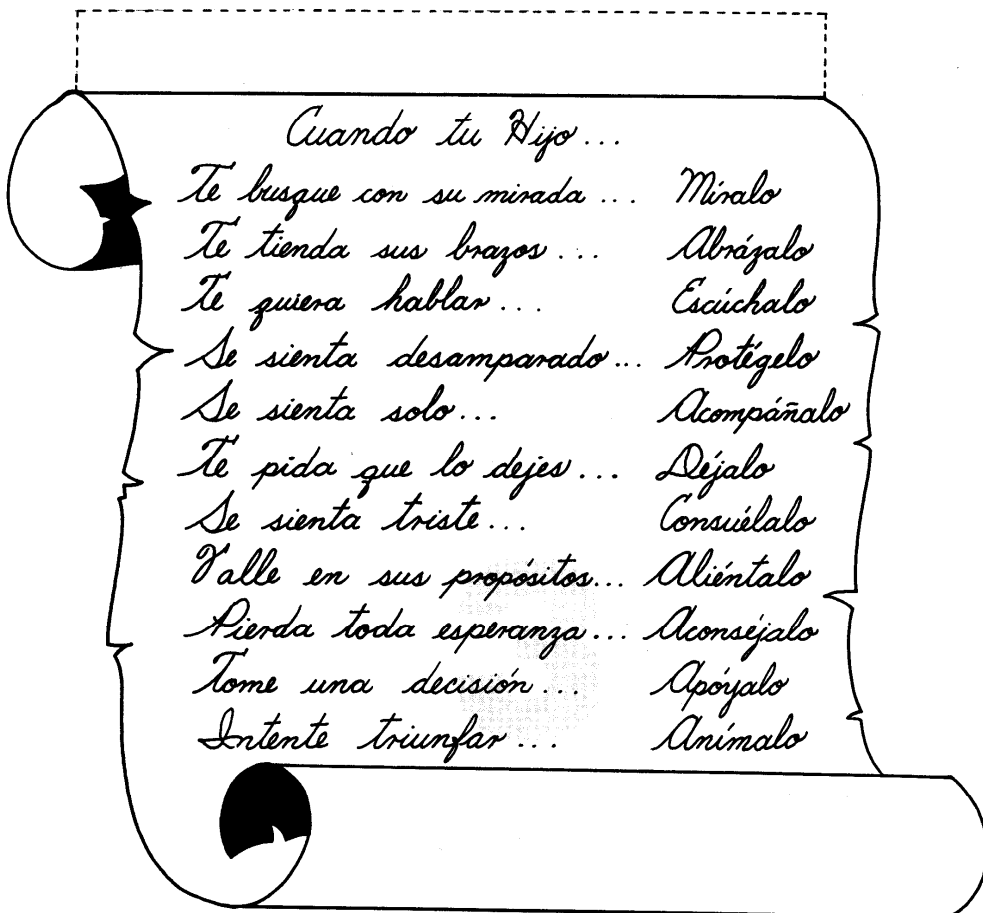 Cuando tu Hijo...
Te busque con su mirada... Míralo
Te tienda sus brazos... Abrázalo
Te quiera hablar... Escúchalo
Se sienta desamparado... Protégelo
Se sienta solo... Acompáñalo
Te pida que lo dejes... Déjalo
Se sienta triste... Consuélalo
Falle en sus propósitos... Aliéntalo
Pierda toda esperanza... Aconséjalo
Tome una decisión... Apóyalo
Intente triunfar... Anímalo